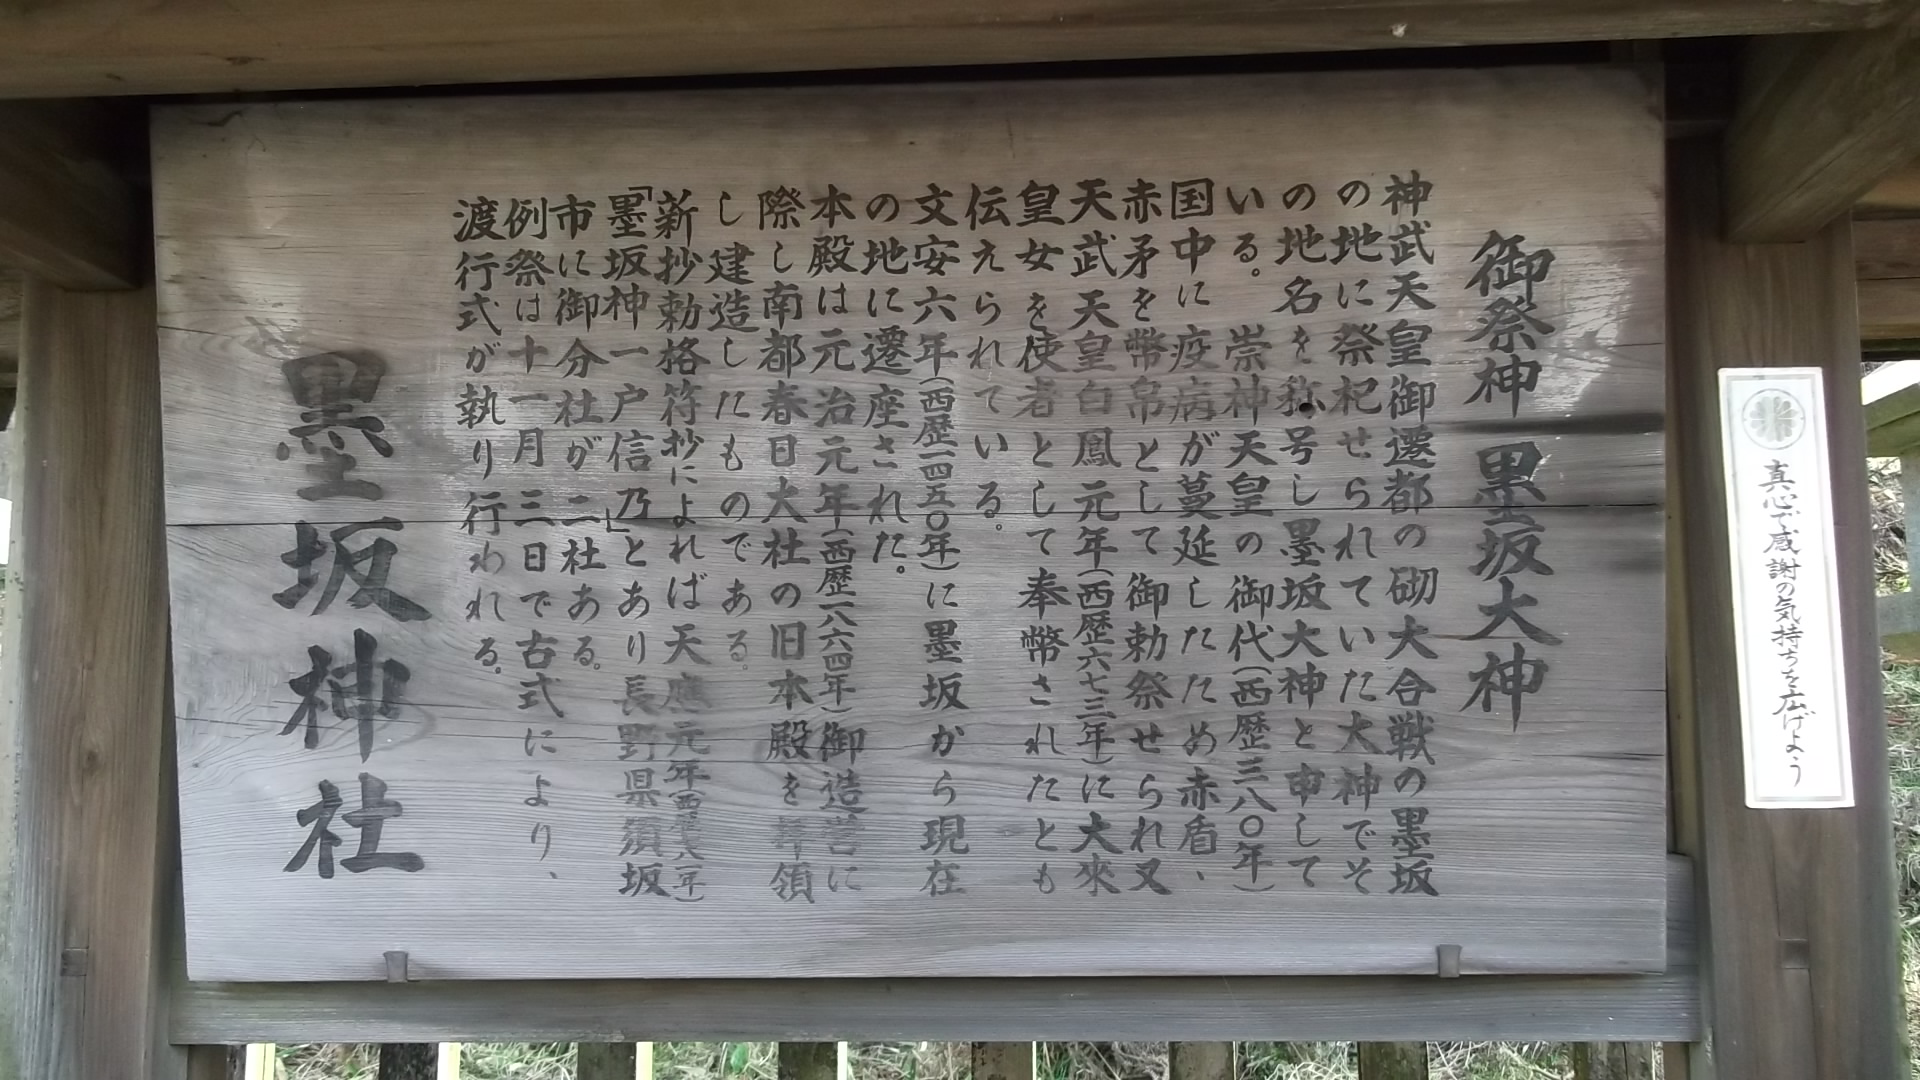 御祭神 墨坂大神
神武天皇御遷都の砌大合戦の墨坂
の地に祭祀せられていた大神でそ
の地名を称号し墨坂大神と申して
いる。 崇神天皇の御代(西歴三八〇年)
国中に疫病が蔓延したため赤盾、
赤矛を幣帛として御勅祭せられ又
天武天皇白鳳元年(西歴六七三年)に大來
皇女を使者として奉幣されたとも
伝えられている。
文安六年(西歴一四五〇年)に墨坂から現在
の地に遷座された。
本殿は元治元年(西歴一八六四年)御造営に
際し南都春日大社の旧本殿を拝領
し建造したものである。
新抄勅格符抄によれば天應元年(西歴七八一年)
「墨坂神一戸信乃」とあり長野県須坂
市に御分社が二社ある。
例祭は十一月三日で古式により、
渡行式が執り行われる。
墨坂神社
真心で感謝の気持ちを広げよう